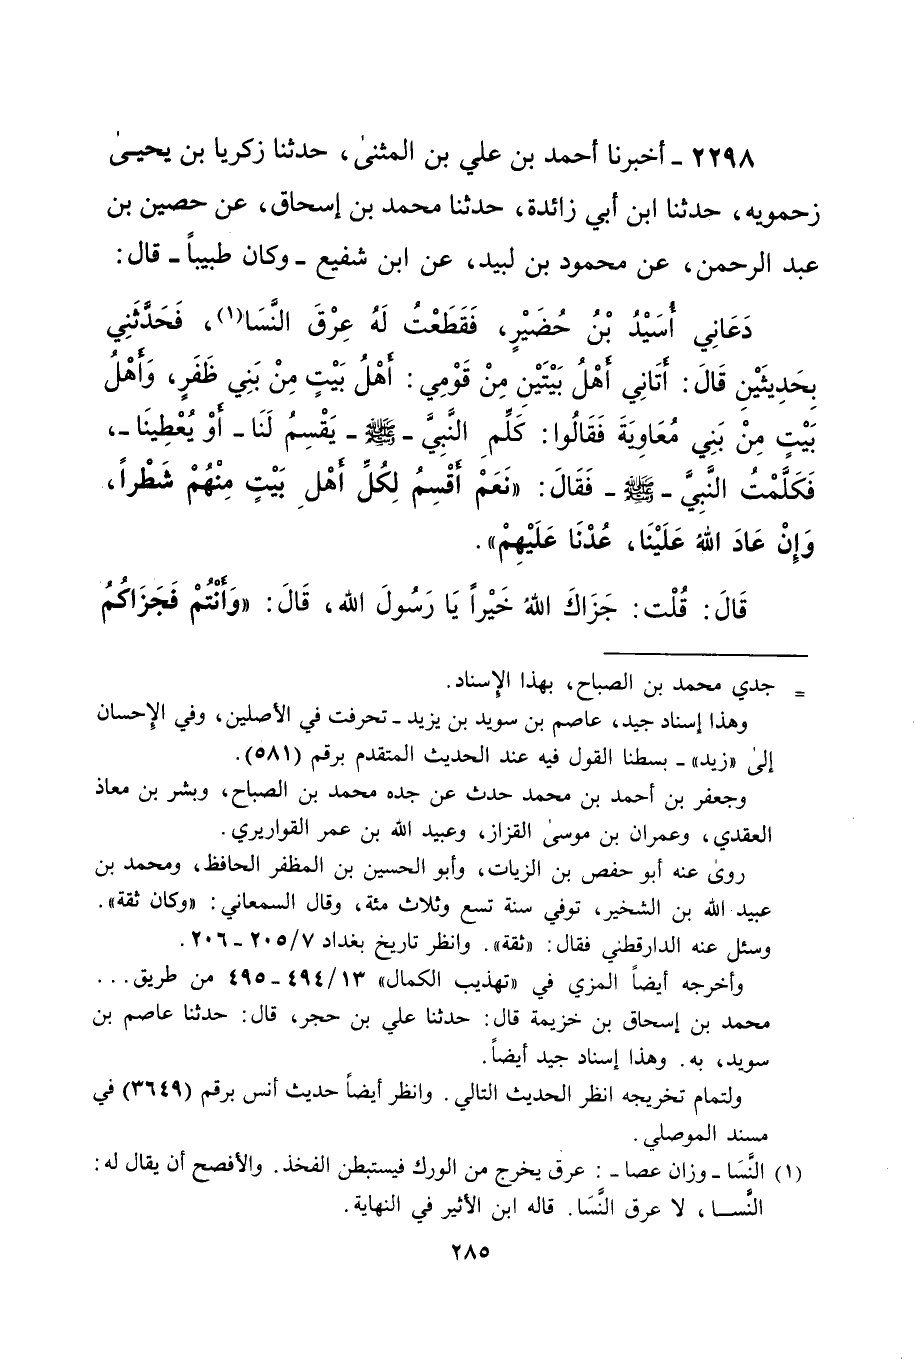 ٢٢٩٨ ـ أخبرنا أحمد بن علي بن المثنىٰ، حدثنا زكريا بن يحيىٰ
زحمويه، حدثنا ابن أبي زائدة، حدثنا محمد بن إسحاق، عن حصين بن
عبد الرحمن، عن محمود بن لبيد، عن ابن شفيع ـ وكان طبيباً ـ قال:
دَعَانِي أُسَيْدُ بْنُ حُضَيْرٍ، فَقَطَعْتُ لَهُ عِرْقَ النَّسَا(١)، فَحَدَّثَنِي
بِحَدِيثَيْنِ قَالَ: أَتَانِي أَهْلُ بَيْتَيْنِ مِنْ قَوْمِي: أَهْلُ بَيْتٍ مِنْ بَنِي ظَفَرٍ، وَأَهْلُ
بَيْتٍ مِنْ بَنِي مُعَاوِيَةَ فَقَالُوا: كَلِّمِ النَّبِيَّ ـ ﷺ ـ يَقْسِمُ لَنَا ـ أَوْ يُعْطِينَا ـ،
فَكَلَّمْتُ النَّبِيَّ ـ ﷺ ـ فَقَالَ: «نَعَمْ أَقْسِمُ لِكُلِّ أَهْلِ بَيْتٍ مِنْهُمْ شَطْراً،
وَإِنْ عَادَ اللهُ عَلَيْنَا، عُدْنَا عَلَيْهِمْ».
قَالَ: قُلْت: جَزَاكَ اللهُ خَيْراً يَا رَسُولَ الله، قَالَ: «وَأَنْتُمْ فَجَزَاكُمُ
= جدي محمد بن الصباح، بهذا الإسناد.
وهذا إسناد جيد، عاصم بن سويد بن يزيد ـ تحرفت في الأصلين، وفي الإحسان
إلىٰ «زيد» ـ بسطنا القول فيه عند الحديث المتقدم برقم (٥٨١).
وجعفر بن أحمد بن محمد حدث عن جده محمد بن الصباح، وبشر بن معاذ
العقدي، وعمران بن موسىٰ القزاز، وعبيد الله بن عمر القواريري.
روىٰ عنه أبو حفص بن الزيات، وأبو الحسين بن المظفر الحافظ، ومحمد بن
عبيد الله بن الشخير، توفي سنة تسع وثلاث مئة، وقال السمعاني: «وكان ثقة».
وسئل عنه الدارقطني فقال: «ثقة». وانظر تاريخ بغداد ٢٠٥/٧ ـ ٢٠٦.
وأخرجه أيضاً المزي في «تهذيب الكمال» ٤٩٤/١٣ ـ ٤٩٥ من طريق...
محمد بن إسحاق بن خزيمة قال: حدثنا علي بن حجر، قال: حدثنا عاصم بن
سويد، به. وهذا إسناد جيد أيضاً.
ولتمام تخريجه انظر الحديث التالي. وانظر أيضاً حديث أنس برقم (٣٦٤٩) في
مسند الموصلي.
(١) النَّسَا ـ وزان عصا ـ : عرق يخرج من الورك فيستبطن الفخذ. والأفصح أن يقال له:
النَّسا، لا عرق النَّسَا. قاله ابن الأثير في النهاية.
٢٨٥